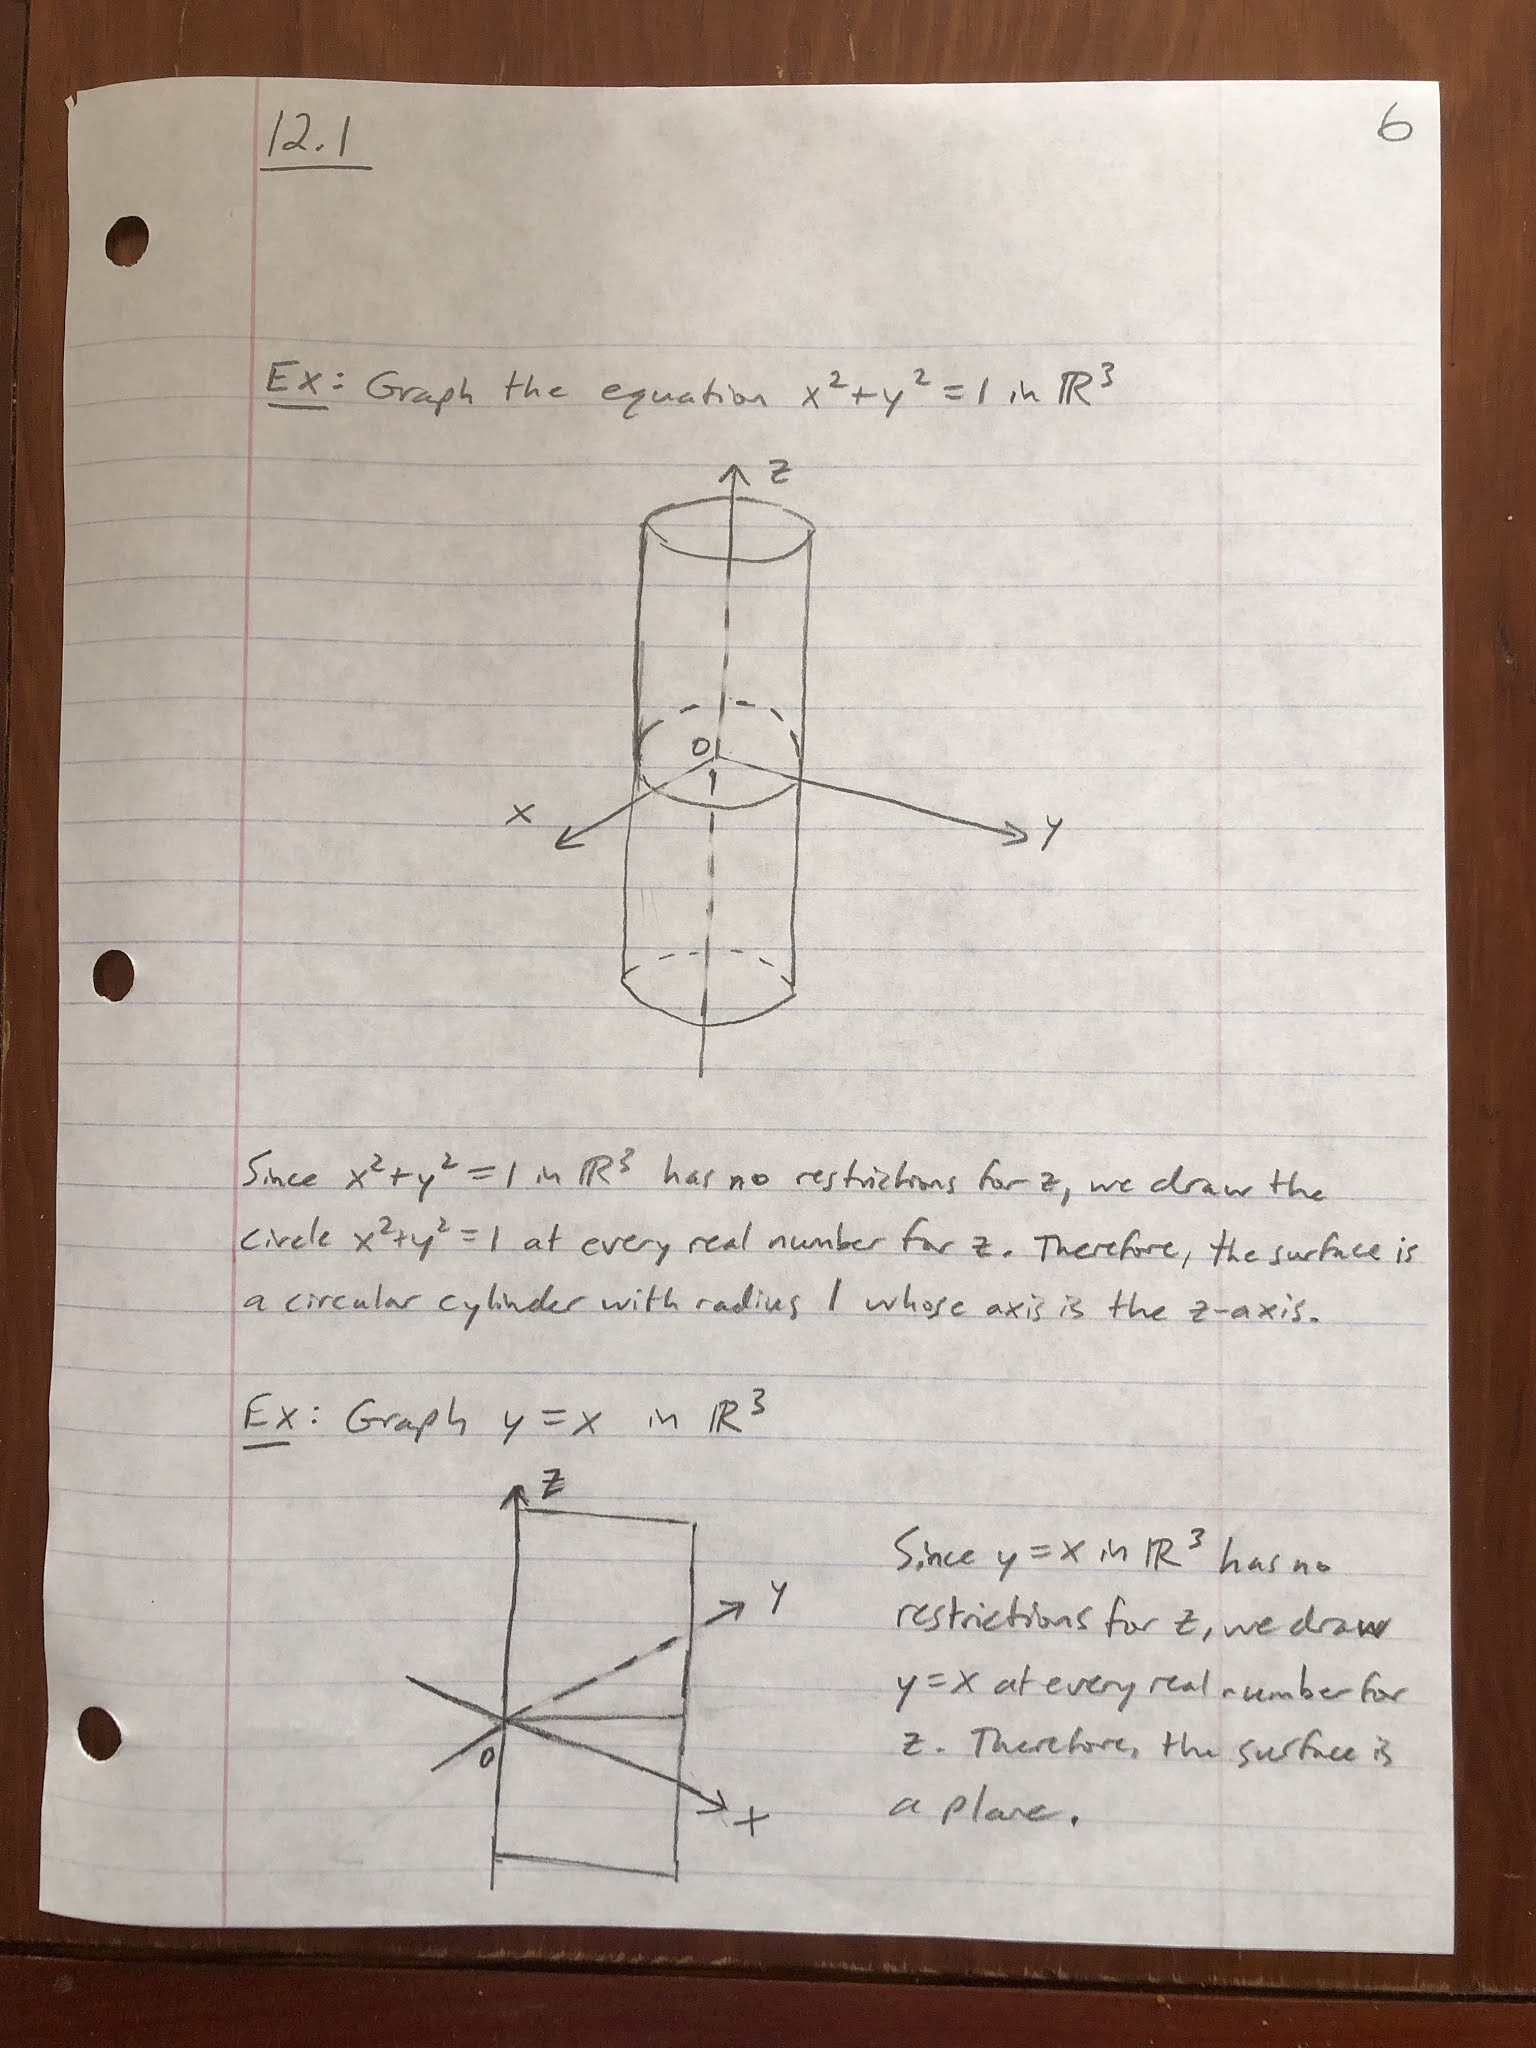 12.1
6
Ex: Graph the equation x²+y²=1 in ℝ³
z
0
x
y
Since x²+y²=1 in ℝ³ has no restrictions for z, we draw the
circle x²+y²=1 at every real number for z. Therefore, the surface is
a circular cylinder with radius 1 whose axis is the z-axis.
Ex: Graph y=x in ℝ³
z
y
0
x
Since y=x in ℝ³ has no
restrictions for z, we draw
y=x at every real number for
z. Therefore, the surface is
a plane.